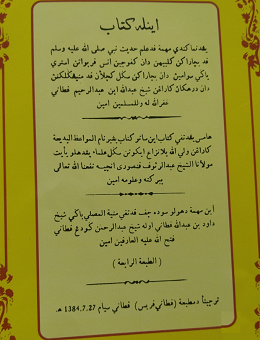 اينله كتاب
يڠدنماكندي مهمة فد علم حديث نبي صلى الله عليه وسلم
فد بچاراكن كلبيهن دان كفوجين اتس فربواتن استري
ياكي سوامين دان بچاراكن سكل كجيلأن فد منيڠكلكنڽ
دان درهكان كارڠن شيخ عبدالله ابن عبدالرحيم فطاني
غفر الله له وللمسلمين امين
هامس يڠدتفي كتاب اين ساتو كتاب يڠبرنام المواعظ البديعة
كارڠن ولي الله بلانزاع ايكوتن سكل علماء يڠدهولو يأيت
مولانا الشيخ عبدالرءوف فنصوري اڽچيه نفعنا الله تعالى
ببركته وعلومه امين
اين مهمة دهولو سوده چف فد تفي منية المصلي باكي شيخ
داود بن عبدالله فطاني اوله شيخ عبدالرحمن كودڠ فطاني
فتح الله عليه العارفين امين
( الطبعة الرابعة )
ترچيتق دمطبعة ( فطاني فريس ) فطاني سيام 1384.7.27 هـ.